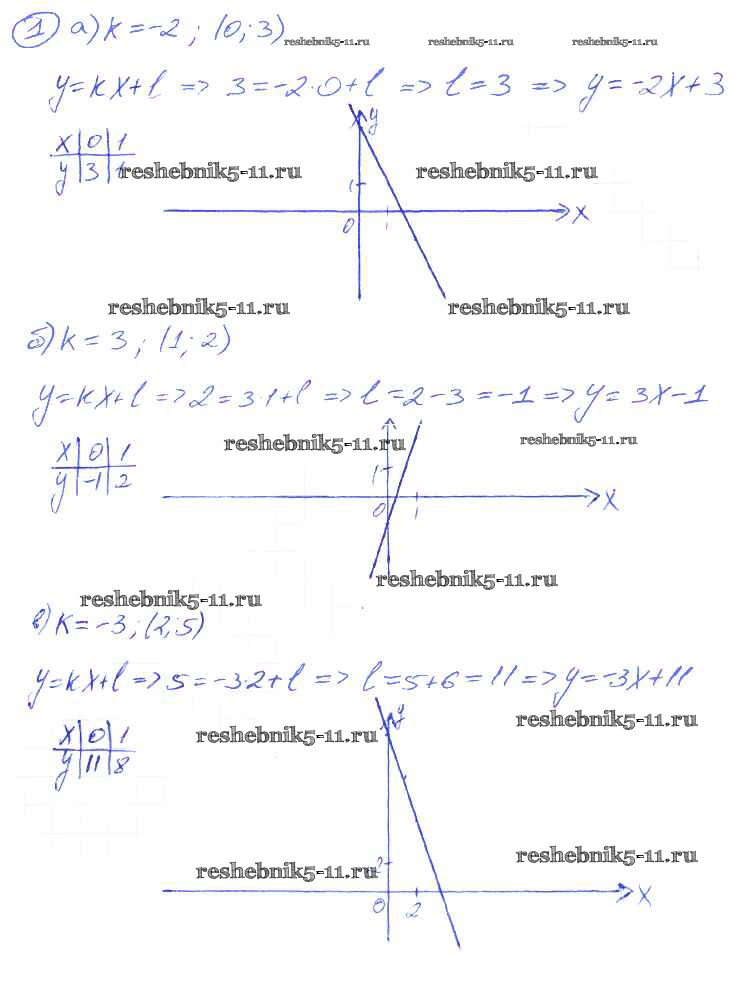 1 а) k=-2; (0; 3)
reshebnik5-11.ru reshebnik5-11.ru reshebnik5-11.ru
y=kx+l => 3=-2·0+l => l=3 => y=-2x+3
x 0 1
y 3 1
reshebnik5-11.ru reshebnik5-11.ru
y
1
0 1 x
reshebnik5-11.ru reshebnik5-11.ru
б) k=3; (1; 2)
y=kx+l => 2=3·1+l => l=2-3=-1 => y=3x-1
reshebnik5-11.ru reshebnik5-11.ru
x 0 1
y -1 2
1
0 1 x
reshebnik5-11.ru
reshebnik5-11.ru
в) k=-3; (2; 5)
y=kx+l => 5=-3·2+l => l=5+6=11 => y=-3x+11
reshebnik5-11.ru reshebnik5-11.ru
x 0 1
y 11 8
y
reshebnik5-11.ru reshebnik5-11.ru
2
0 2 x